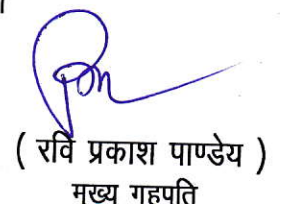 ( रवि प्रकाश पाण्डेय )
मुख्य गृहपति